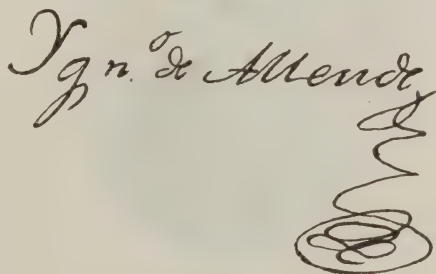 Ygn.º de Allende